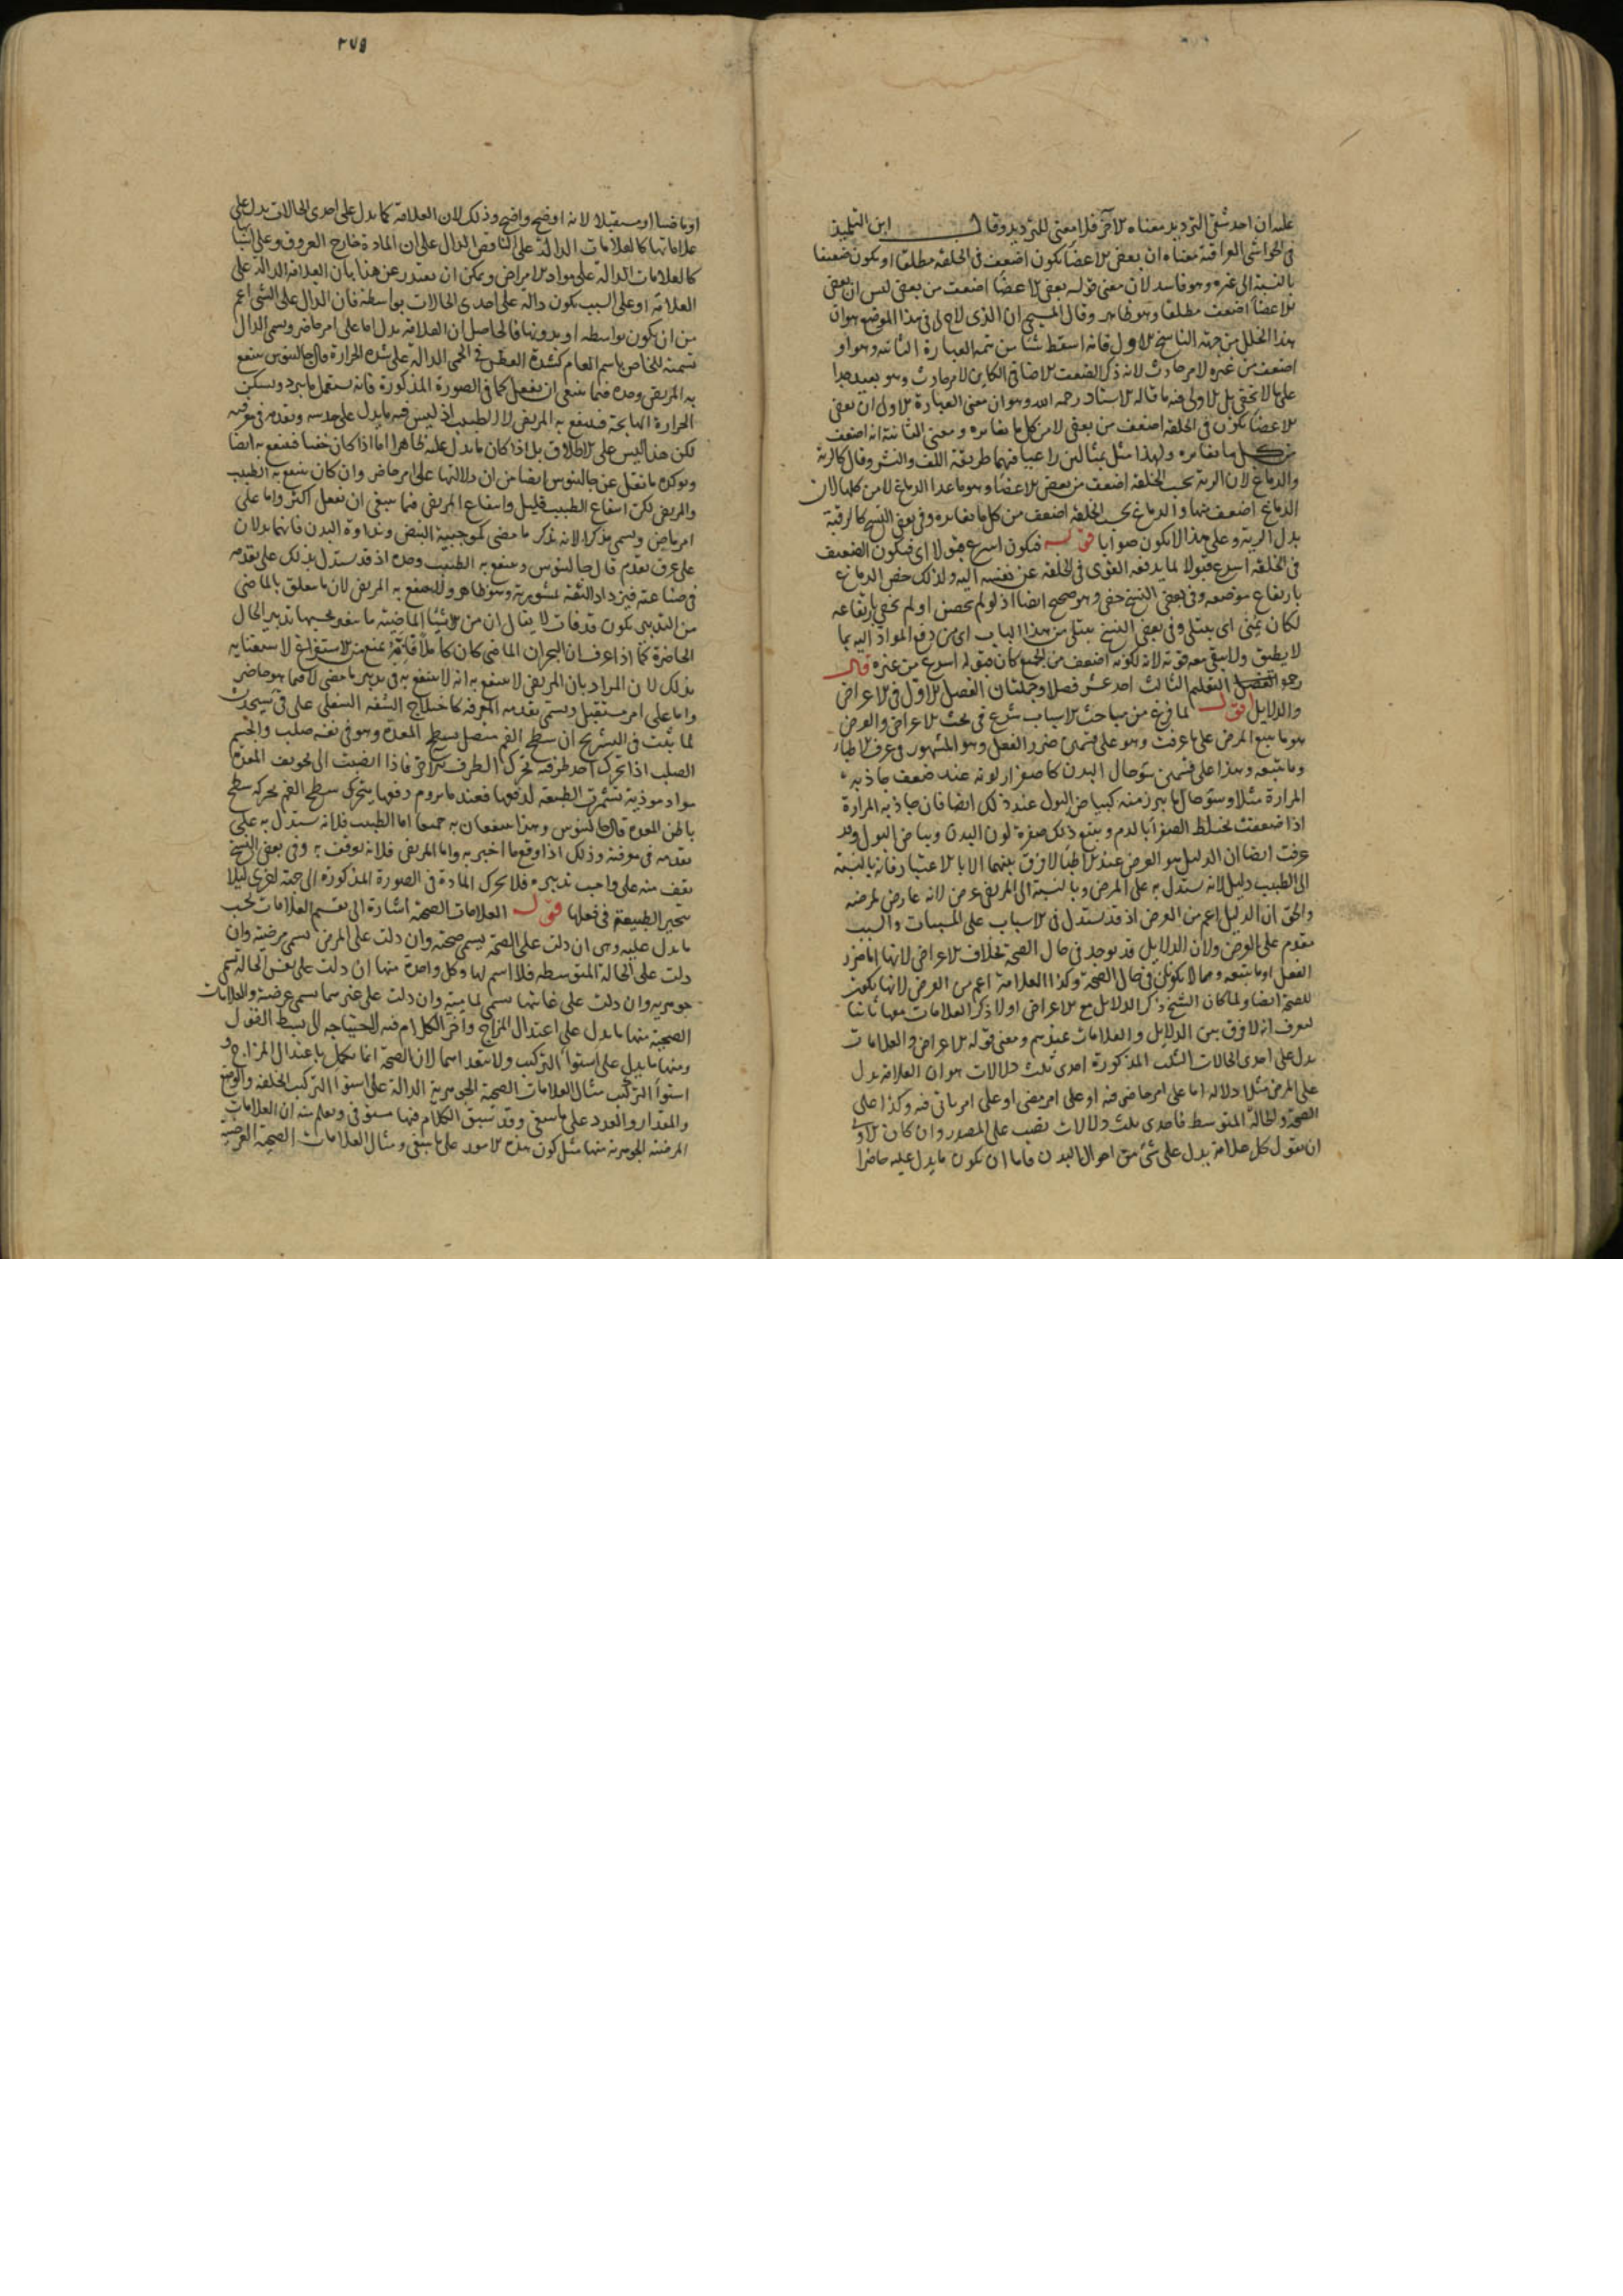 عليه ان احد شقي الترديد معناه الآخر فلا معنى للترديد وقال ابن التلميذ
في الحواشي العراقية معناه ان بعض الاعضا يكون اضعف في الخلقة مطلقا او يكون ضعيفا
بالنسبة الى غيره وهو فاسد لان معنى قوله بعض الاعضا اضعف من بعض ليس ان بعض
الاعضا اضعف مطلقا وهو ظاهر وقال المسيحي ان الذي لاح لي في هذا الموضع هو ان
هذا الخلل من جهة الناسخ الاول فانه اسقط شيا من تتمة العبارة الثانية وهو او
اضعف من غيره لامر حادث لانه ذكر الضعف الاضافي الكاين لامر حادث وهو بعيد جدا
على ما لا يخفى بل الاولى فيه ما قاله الاستاد رحمه الله وهو ان معنى العبارة الاولى ان بعض
الاعضا يكون في الخلقة اضعف من بعض لا من كل ما يغايره ومعنى الثانية انه اضعف
من كل ما يغايره ولهذا مثل بمثالين راعيا فيهما طريقة اللف والنشر وقال كالرية
والدماغ لان الرية بحسب الخلقة اضعف من بعض الاعضا وهو ما عدا الدماغ لا من كلها لان
الدماغ اضعف منها والدماغ بحسب الخلقة اضعف من كل ما يغايره وفي بعض النسخ كالرقبة
بدل الرية وعلى هذا لا يكون صوابا قوله فيكون اسرع قبولا اي فيكون الضعيف
في الخلقة اسرع قبولا لما يدفعه القوى في الخلقة عن نفسه اليه ولذلك خص الدماغ
بارتفاع موضعه وفي بعض النسخ حفي وهو صحيح ايضا اذ لو لم يحصن او لم يخص بارتفاعه
لكان يمنى اي يبتلى وفي بعض النسخ يبتلى من هذا الباب اي من دفع المواد اليه بما
لا يطيق ولا يبقى معه قوته لانه لكونه اضعف من الجميع كان قبوله اسرع من غيره قال
رحمه التعليم الثالث احد عشر فصلا وجملتان الفصل الاول في الاعراض
والدلايل اقول لما فرغ من مباحث الاسباب شرع في بحث الاعراض والعرض
هو ما يتبع المرض على ما عرفت وهو على قسمين ضرر الفعل وهو المشهور في عرف الاطباء
وما يتبعه وهذا على قسمين سوء حال البدن كاصفرار لونه عند ضعف جاذبه
المرارة مثلا وسوء حال ما يبرز منه كبياض البول عند ذلك ايضا فان جاذبة المرارة
اذا ضعفت يختلط الصفرا بالدم ويتبع ذلك صفرة لون البدن وبياض البول وقد
عرفت ايضا ان الدليل هو العرض عند الاطبا لا فرق بينهما الا بالاعتبار فانه بالنسبة
الى الطبيب دليل لانه يستدل به على المرض وبالنسبة الى المريض عرض لانه عارض لمرضه
والحق ان الدليل اعم من العرض اذ قد يستدل في الاسباب على المسببات والسبب
مقدم على العرض ولان الدلايل قد توجد في حال الصحة بخلاف الاعراض لانها اما ضرر
الفعل او ما يتبعه وهما لا يكونان في حال الصحة وكذا العلامة اعم من العرض لانها تكون
للصحة ايضا ولما كان الشيخ ذكر الدلايل مع الاعراض اولا ذكر العلامات معها ثانيا
ليعرف انه لا فرق بين الدلايل والعلامات عندهم ومعنى قوله الاعراض والعلامات
يدل على احدى الحالات الثلث المذكورة احدى ثلث دلالات هو ان العلامة يدل
على المرض مثلا دلالة اما على امر حاضر فيه او على امر مضى او على امر ياتي فيه وكذا على
الصحة والحالة المتوسطة فاحدى ثلث دلالات نصب على المصدر وان كان الاولى
ان يقول كل علامة يدل على شيء من احوال البدن فاما ان يكون ما يدل عليه حاضرا
٢٧٥
او ماضيا او مستقبلا لانه اوضح واضح وذلك لان العلامة كما يدل على احدى الحالات يدل على
علاماتها كالعلامات الدالة على النافض الدال على ان المادة خارج العروق وعلى اسبابها
كالعلامات الدالة على مواد الامراض ويمكن ان يعتذر عن هذا بان العلامة الدالة على
العلامة او على السبب يكون دالة على احدى الحالات بواسطة فان الدال على الشي اعم
من ان يكون بواسطة او بدونها فالحاصل ان العلامة يدل اما على امر حاضر ويسمى الدال
تسمية للخاص باسم العام كشدة العطش في الحمى الدالة على شدة الحرارة قال جالينوس ينتفع
به المريض وحده فيما ينبغي ان يفعل كما في الصورة المذكورة فانه يستعمل ما يبرد ويسكن
الحرارة الهايجة فينتفع به المريض لا الطبيب اذ ليس فيه ما يدل على حدسه وتقدمه في معرفته
لكن هذا ليس على الاطلاق بل اذا كان ما يدل عليه ظاهرا اما اذا كان خفيا فينتفع به ايضا
ويوكده ما نقل عن جالينوس ايضا من ان دلالتها على امر حاضر وان كان ينتفع به الطبيب
والمريض لكن انتفاع الطبيب قليل وانتفاع المريض فيما ينبغي ان يفعل اكثر واما على
امر ماض ويسمى مذكرا لانه يذكر ما مضى كموجية النبض ونداوة البدن فانهما يدلان
على عرق تقدم قال جالينوس وينتفع به الطبيب وحده اذ قد يستدل بذلك على تقدمه
في صناعته فيزداد الثقة بمشورته وهو ظاهر ولا ينتفع به المريض لان ما يتعلق بالماضي
من التدبير يكون قد فات لا يقال ان من الاشياء الماضية ما ينفع بحسبها تدبير الحال
الحاضرة كما اذا عرف ان البحران الماضي كان كاملا فانه يمنع من الاستفراغ لاستغنايه
بذلك لان المراد بان المريض لا ينتفع به انه لا ينتفع به في تدبير ما مضى لا فيما هو حاضر
واما على امر مستقبل ويسمى تقدمه المعرفة كاختلاج الشفة السفلى على قيء سيحدث
لما ثبت في التشريح ان سطح الفم متصل بسطح المعدة وهو في نفسه صلب والجسم
الصلب اذا تحرك احد طرفيه تحرك الطرف الاخر فاذا انصبت الى تجويف المعدة
مواد موذية تشمرت الطبيعة لدفعها فعند ما يروم دفعها يتحرك سطح الفم بحركة سطح
باطن المعدة قال جالينوس وهذا ينتفعان به جميعا اما الطبيب فلانه يستدل به على
تقدمه في معرفته وذلك اذا وقع ما اخبر به واما المريض فلانه يوقف به وفي بعض النسخ
يقف منه على واجب تدبيره فلا يحرك المادة في الصورة المذكورة الى جهة اخرى ليلا
يتحير الطبيعة في فعلها قوله العلامات الصحية اشارة الى تقسيم العلامات بحسب
ما يدل عليه وهي ان دلت على الصحة يسمى صحية وان دلت على المرض يسمى مرضية وان
دلت على الحالة المتوسطة فلا اسم لها وكل واحدة منها ان دلت على نفس الحالة يسمى
جوهرية وان دلت على غايتها يسمى تمامية وان دلت على غيرهما يسمى عرضية والعلامات
الصحية منها ما يدل على اعتدال المزاج واخر الكلام فيه لاحتياجه الى بسط القول
ومنها ما يدل على استواء التركيب ولا يتعد اسما لان الصحة انما تكمل باعتدال المزاج و
استواء التركيب مثال العلامات الصحية الجوهرية الدالة على استواء التركيب الخلقة والوضع
والمقدار والعدد على ما ينبغي وقد سبق الكلام فيها مستوفى ويعلم منه ان العلامات
المرضية الجوهرية منها مثل كون هذه الامور على ما ينبغي ومثال العلامات الصحية العرضية